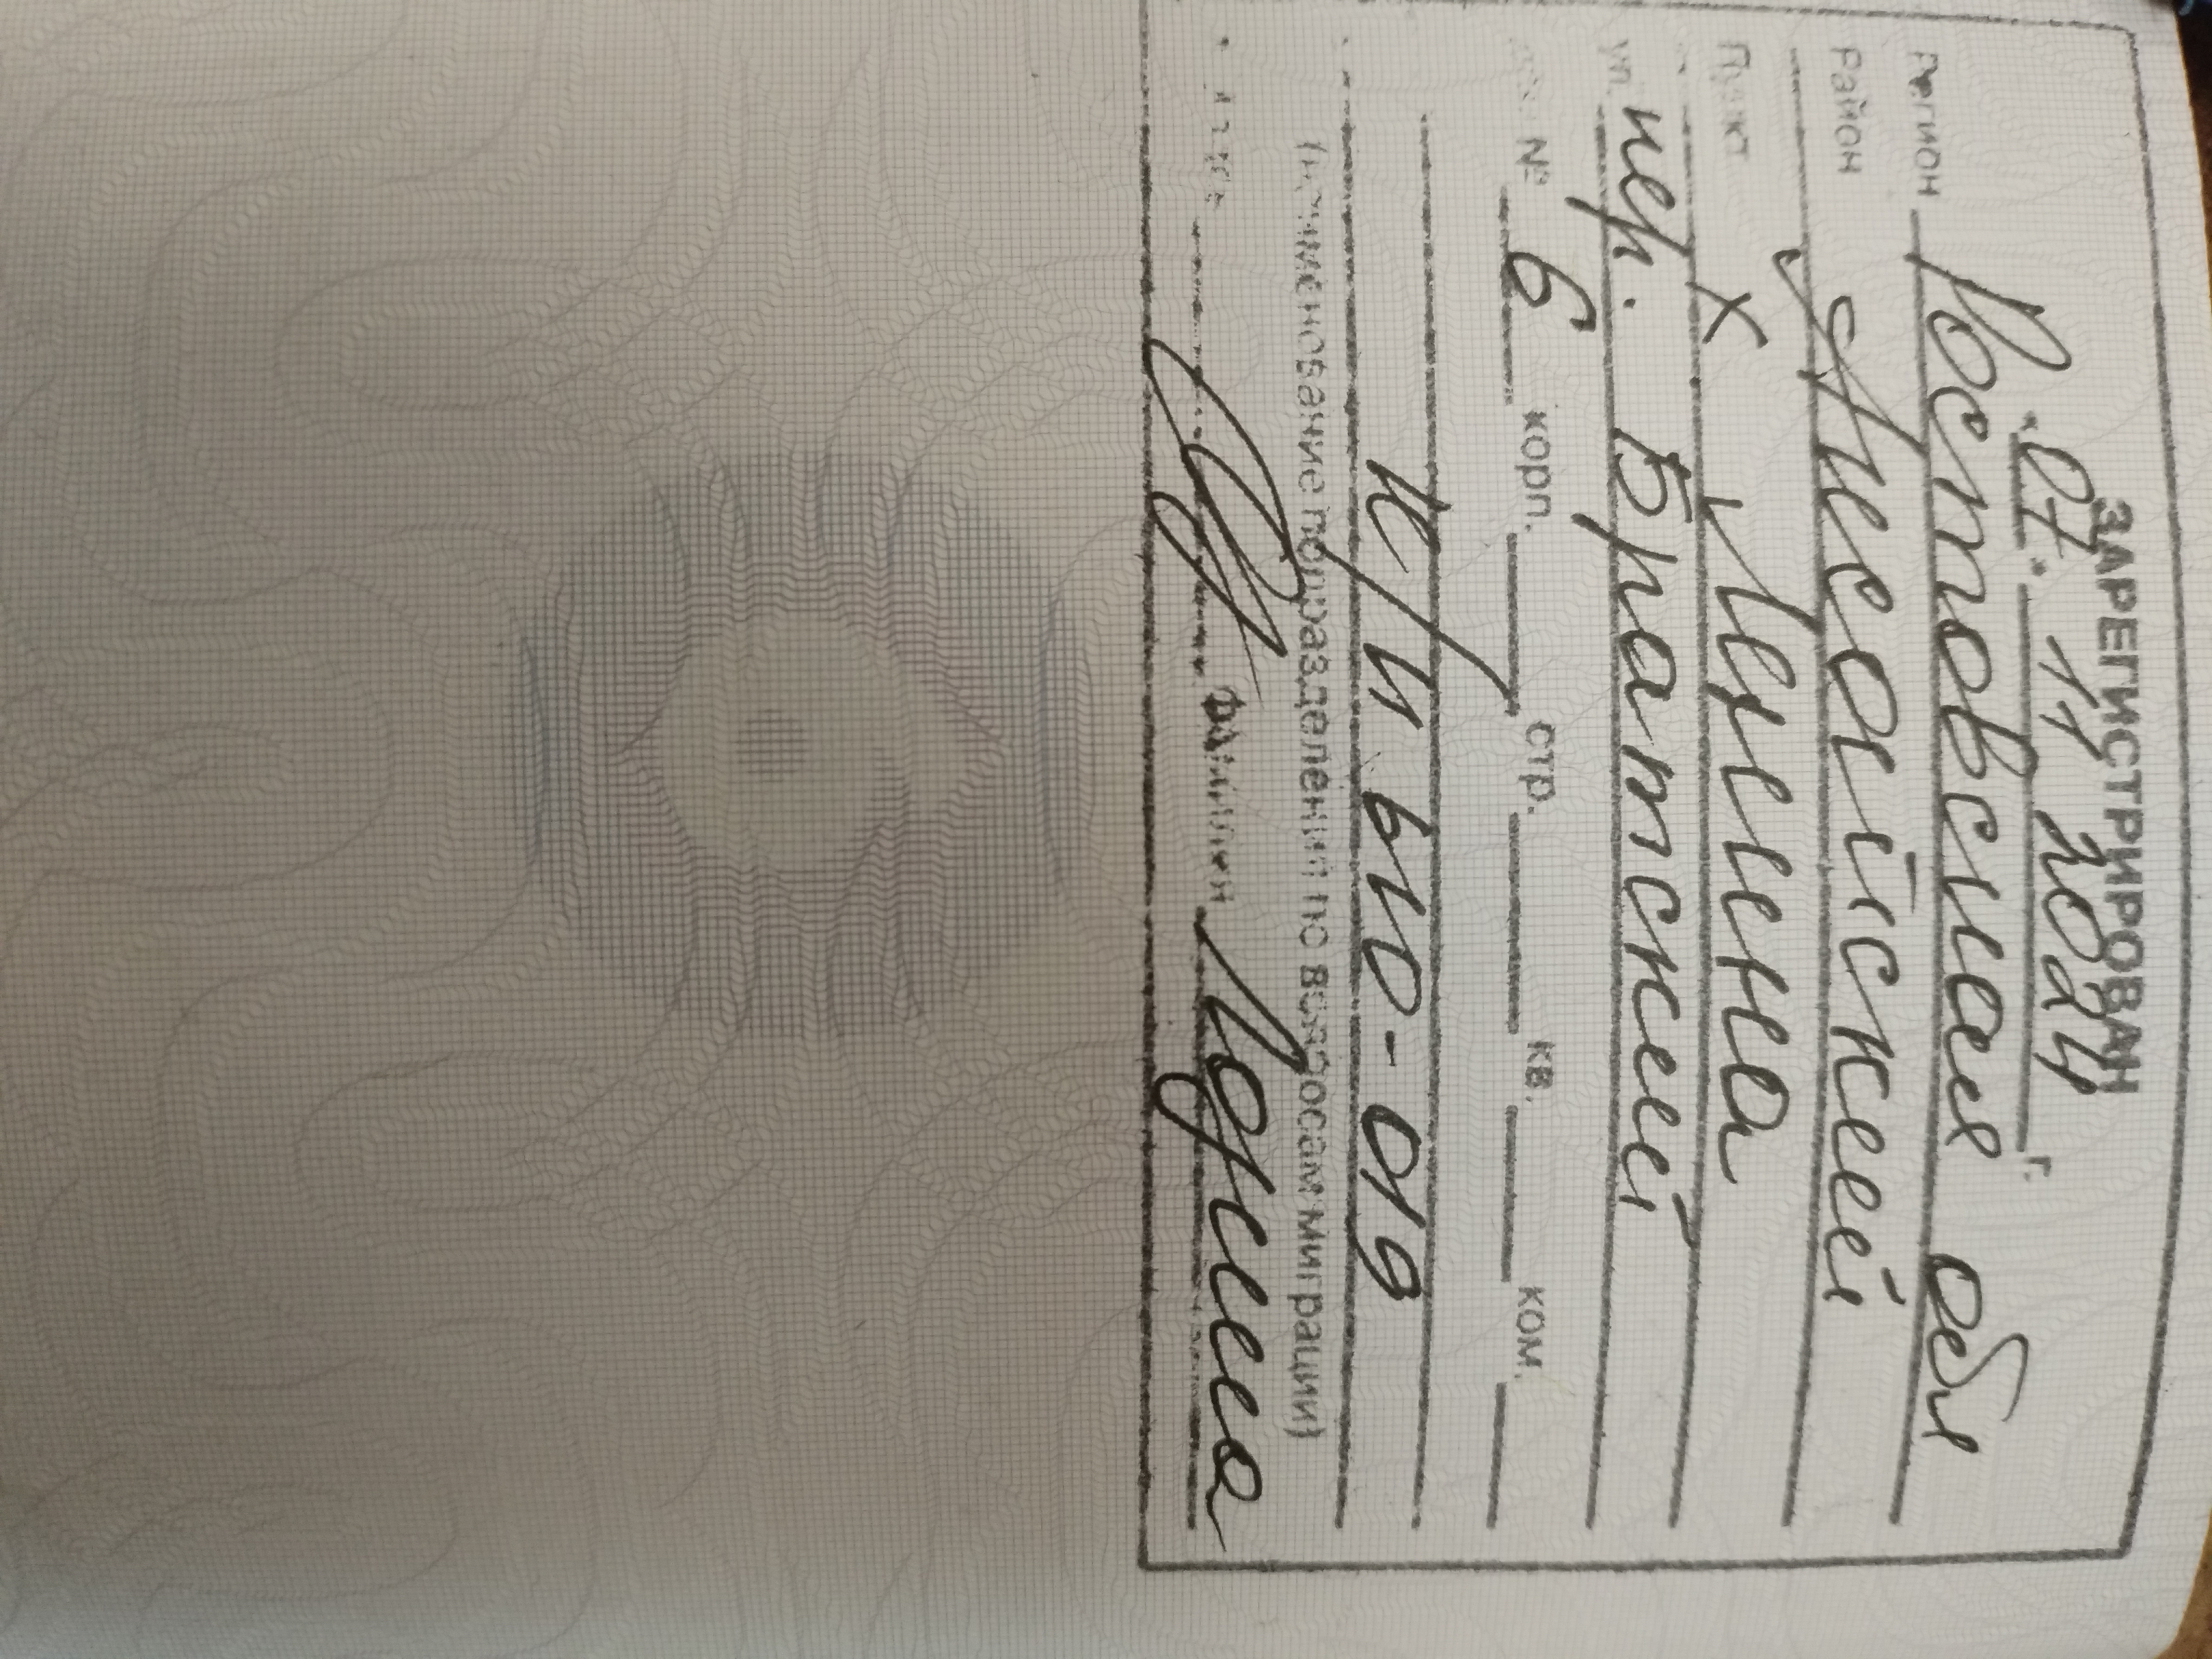 ЗАРЕГИСТРИРОВАН
"07" 11 2024 г.
Регион Ростовская обл
Район Аксайский
Пункт х Ленина
ул. пер. Братский
№ 6 корп. стр. кв. ком.
610-019
(наименование подразделения по вопросам миграции)
Фамилия